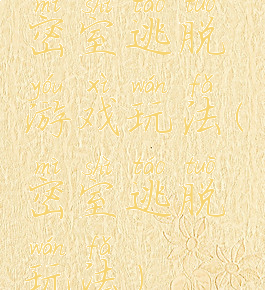 mì shì táo tuō
密室逃脱
yóu xì wán fǎ
游戏玩法(
mì shì táo tuō
密室逃脱
wán fǎ
玩法)